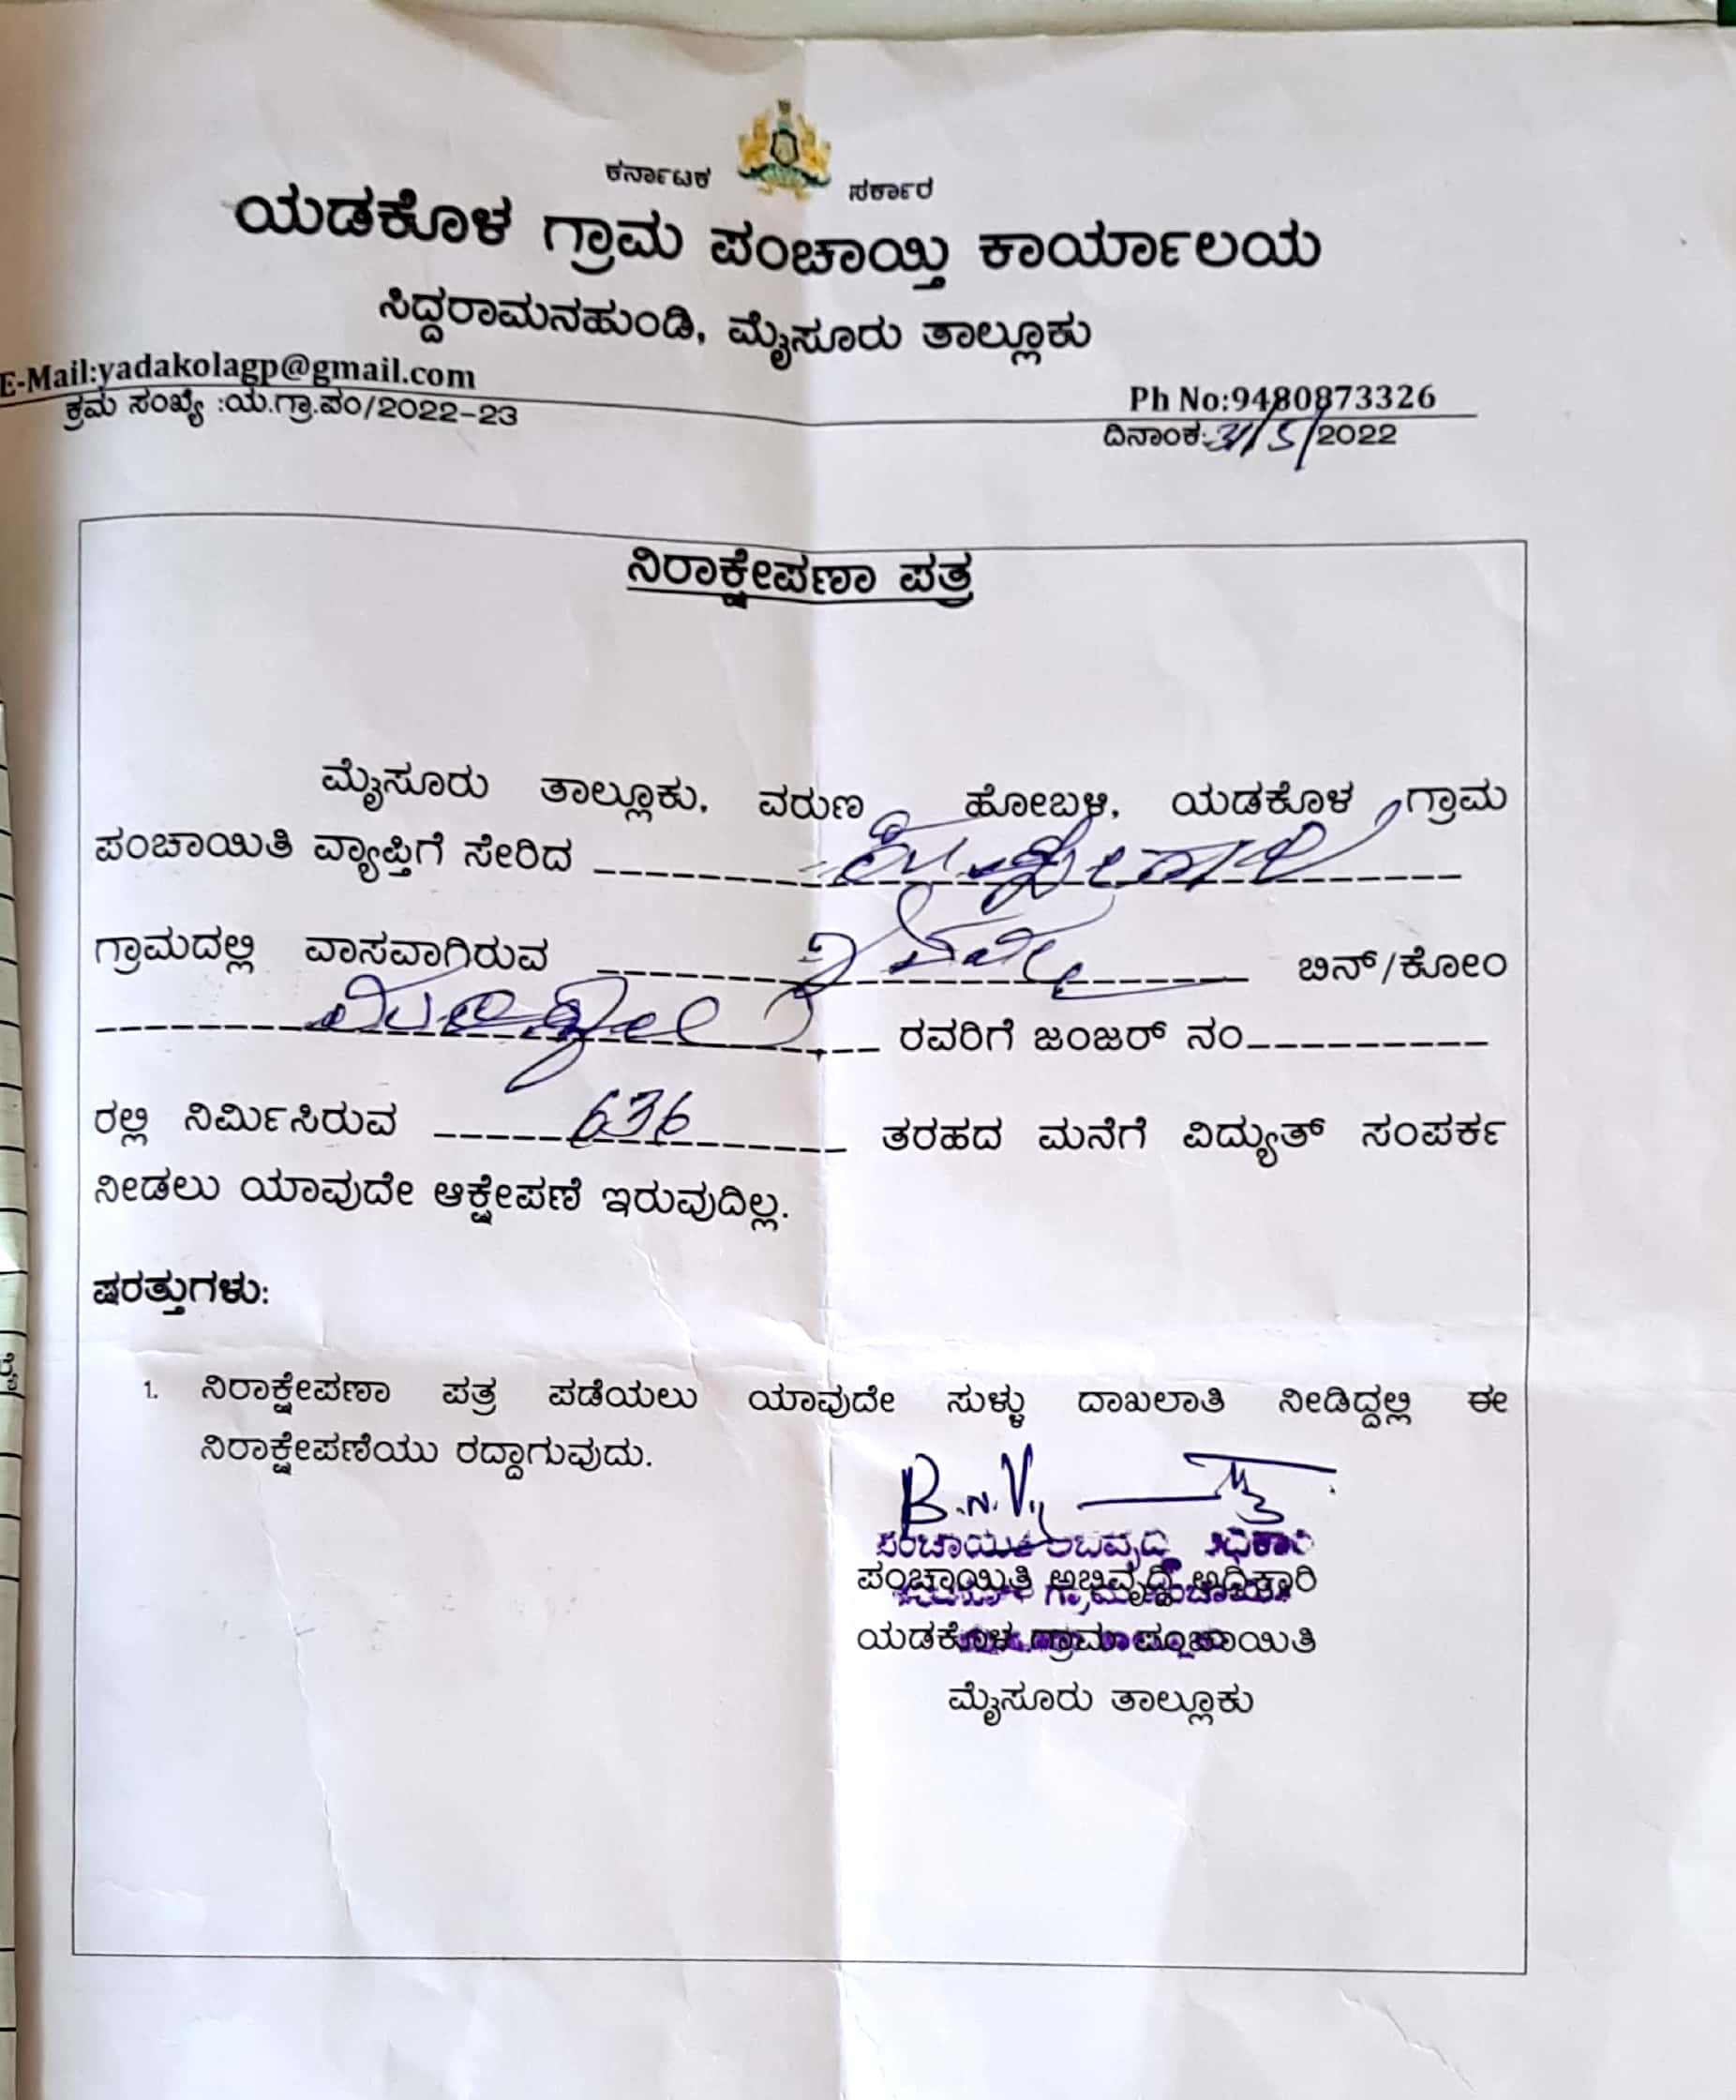 ಕರ್ನಾಟಕ ಸರ್ಕಾರ
ಯಡಕೊಳ ಗ್ರಾಮ ಪಂಚಾಯ್ತಿ ಕಾರ್ಯಾಲಯ
ಸಿದ್ದರಾಮನಹುಂಡಿ, ಮೈಸೂರು ತಾಲ್ಲೂಕು
E-Mail:yadakolagp@gmail.com Ph No:9480873326
ಕ್ರಮ ಸಂಖ್ಯೆ :ಯ.ಗ್ರಾ.ಪಂ/2022-23 ದಿನಾಂಕ:31/5/2022
ನಿರಾಕ್ಷೇಪಣಾ ಪತ್ರ
ಮೈಸೂರು ತಾಲ್ಲೂಕು, ವರುಣ ಹೋಬಳಿ, ಯಡಕೊಳ ಗ್ರಾಮ
ಪಂಚಾಯಿತಿ ವ್ಯಾಪ್ತಿಗೆ ಸೇರಿದ
ಗ್ರಾಮದಲ್ಲಿ ವಾಸವಾಗಿರುವ ಬಿನ್/ಕೋಂ
ರವರಿಗೆ ಜಂಜರ್ ನಂ
ರಲ್ಲಿ ನಿರ್ಮಿಸಿರುವ 636 ತರಹದ ಮನೆಗೆ ವಿದ್ಯುತ್ ಸಂಪರ್ಕ
ನೀಡಲು ಯಾವುದೇ ಆಕ್ಷೇಪಣೆ ಇರುವುದಿಲ್ಲ.
ಷರತ್ತುಗಳು:
1. ನಿರಾಕ್ಷೇಪಣಾ ಪತ್ರ ಪಡೆಯಲು ಯಾವುದೇ ಸುಳ್ಳು ದಾಖಲಾತಿ ನೀಡಿದ್ದಲ್ಲಿ ಈ
ನಿರಾಕ್ಷೇಪಣೆಯು ರದ್ದಾಗುವುದು.
ಪಂಚಾಯಿತಿ ಅಭಿವೃದ್ಧಿ ಅಧಿಕಾರಿ
ಯಡಕೊಳ ಗ್ರಾಮ ಪಂಚಾಯಿತಿ
ಮೈಸೂರು ತಾಲ್ಲೂಕು